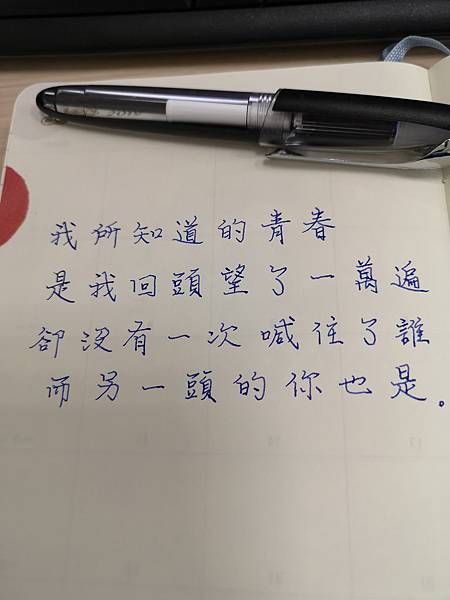 我所知道的青春
是我回頭望了一萬遍
卻沒有一次喊住了誰
而另一頭的你也是。